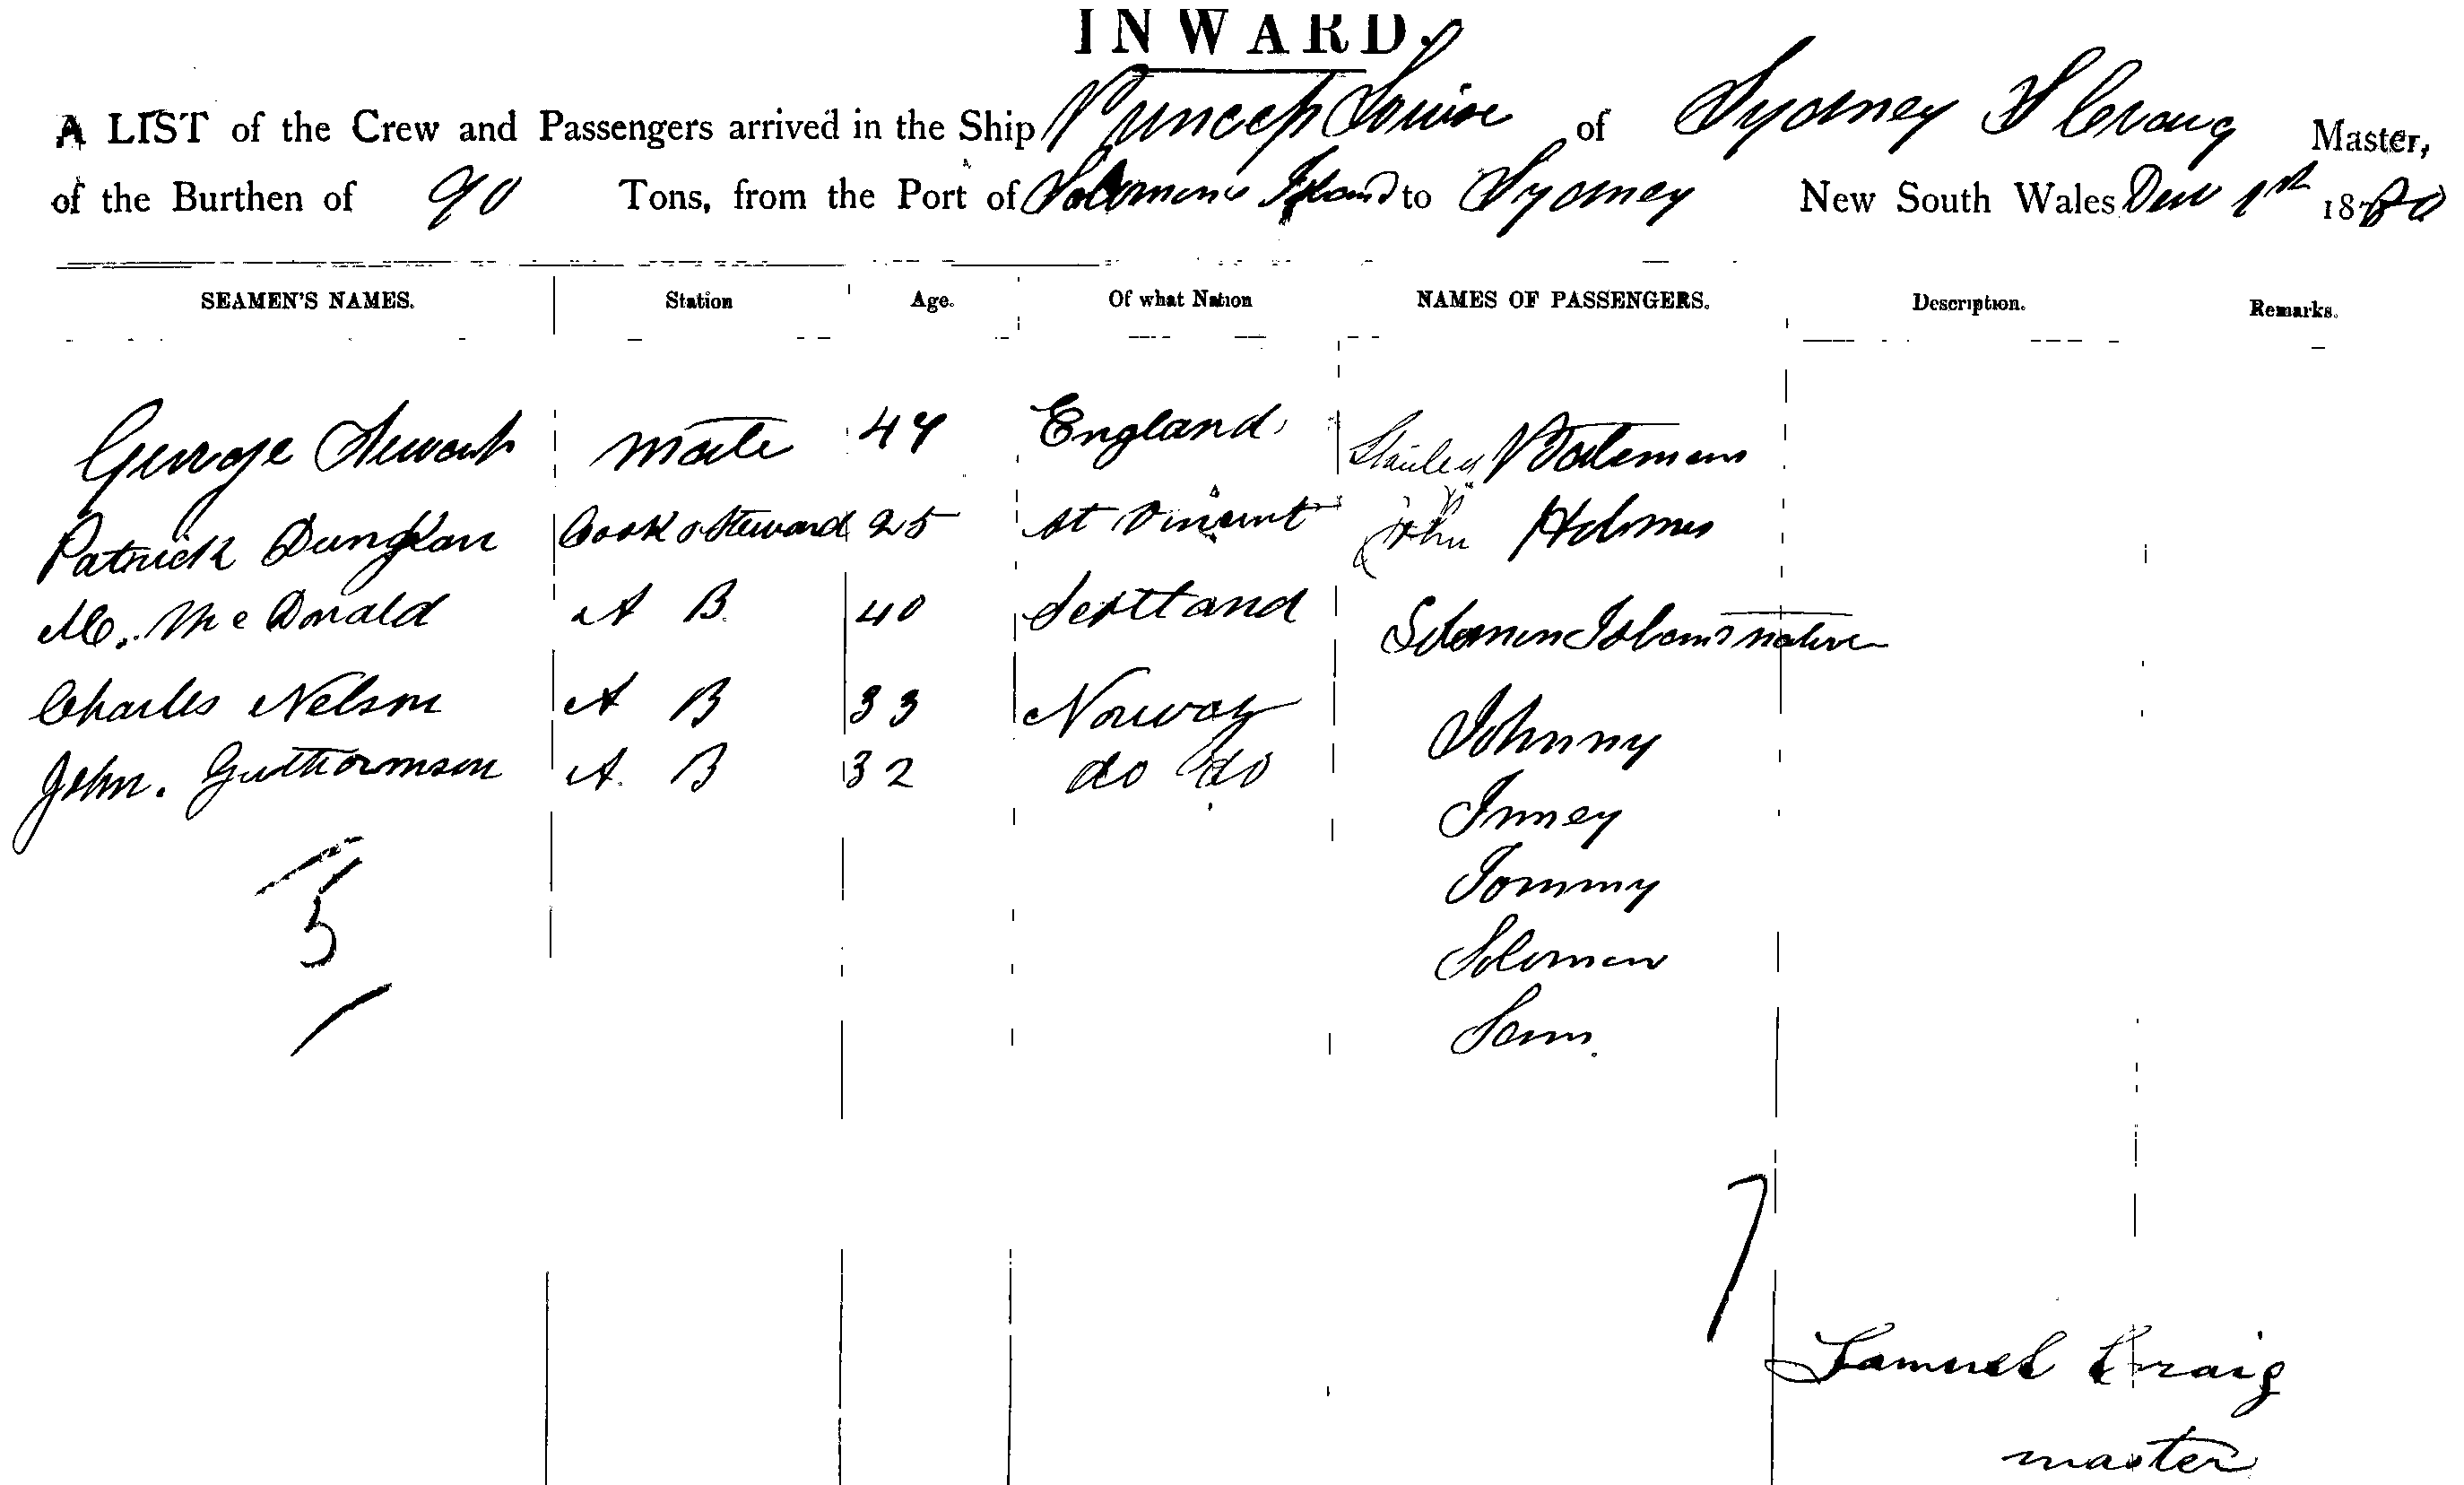 INWARD.
A LIST of the Crew and Passengers arrived in the Ship Princess Louise of Sydney S Craig Master,
of the Burthen of 90 Tons, from the Port of Solomons Island to Sydney New South Wales Dec 1st 1880
SEAMEN'S NAMES. Station Age. Of what Nation NAMES OF PASSENGERS. Description. Remarks.
George Stewart mate 47 England Stanley Bateman
Patrick Cook & Steward 25 St Vincent John Holmes
M. McDonald A B. 40 Scotland Solomon Islands native
Charles Nelson A B 33 Norway Johnny
John. Guttormsen A. B 32 do do Jimey
5 Tommy
Solomon
Sam.
7
Samuel Craig
master